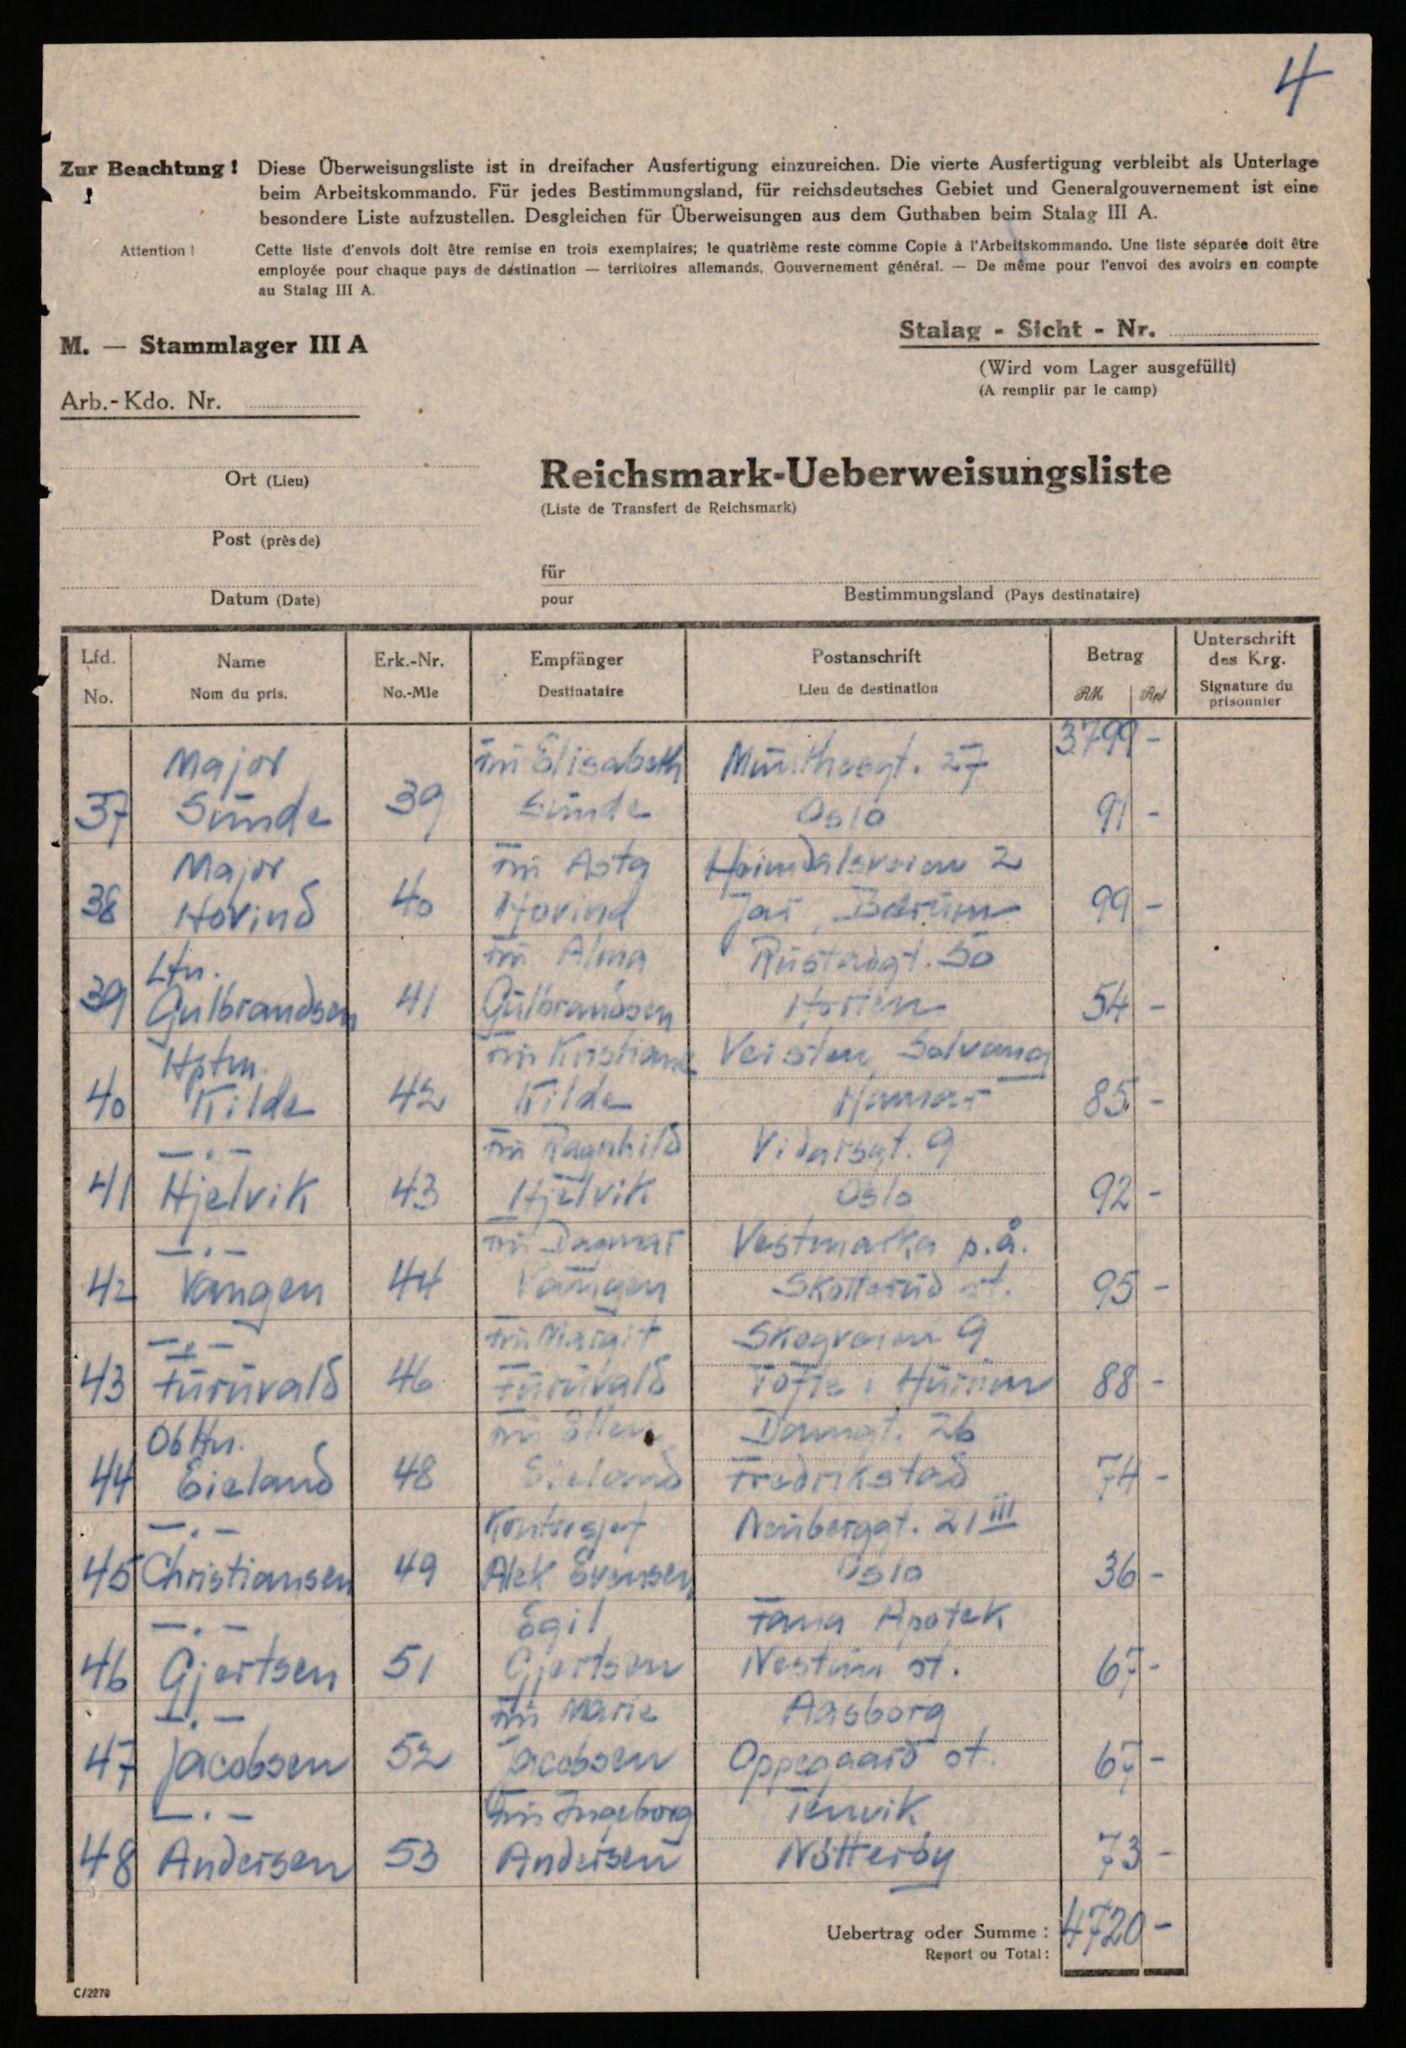 4
Zur Beachtung ! Diese Überweisungsliste ist in dreifacher Ausfertigung einzureichen. Die vierte Ausfertigung verbleibt als Unterlage
beim Arbeitskommando. Für jedes Bestimmungsland, für reichsdeutsches Gebiet und Generalgouvernement ist eine
besondere Liste aufzustellen. Desgleichen für Überweisungen aus dem Guthaben beim Stalag III A.
Attention ! Cette liste d'envois doit être remise en trois exemplaires; le quatrième reste comme Copie à l'Arbeitskommando. Une liste séparée doit être
employée pour chaque pays de destination — territoires allemands, Gouvernement général. — De même pour l'envoi des avoirs en compte
au Stalag III A.
Stalag - Sicht - Nr.
M. — Stammlager III A
(Wird vom Lager ausgefüllt)
(A remplir par le camp)
Arb.-Kdo. Nr.
Reichsmark-Ueberweisungsliste
Ort (Lieu)
(Liste de Transfert de Reichsmark)
Post (près de)
für
Datum (Date)
pour Bestimmungsland (Pays destinataire)
Lfd. Name Erk.-Nr. Empfänger Postanschrift Betrag Unterschrift des Krg.
No. Nom du pris. No.-Mle Destinataire Lieu de destination RM Rpf Signature du prisonnier
3799 -
Major Frü Elisabeth Münthesgt. 27
37 Sünde 39 Sünde Oslo 91 -
Major Frü Asta Heimdalsveien 2
38 Hovind 40 Hovind Jar, Bærüm 99 -
Ltn. Frü Alma Rüstadgt. 50
39 Gülbrandsen 41 Gülbrandsen Horten 54 -
Hptm. Frü Kristiane Veisten, Solvang
40 Kilde 42 Kilde Hamar 85 -
— . — Frü Ragnhild Vidarsgt. 9
41 Hjelvik 43 Hjelvik Oslo 92 -
— . — Frü Dagmar Vestmarka p.å.
42 Vangen 44 Vangen Skotterüd st. 95 -
— . — Frü Margit Skogveien 9
43 Fürüvald 46 Fürüvald Tofte i Hürüm 88 -
Obltn. Frü Ellen Damgt. 26
44 Eieland 48 Eieland Fredrikstad 74 -
— . — Kontorsjef Neüberggt. 21 III
45 Christiansen 49 Alek Evensen Oslo 36 -
— . — Egil Fana Apotek
46 Gjertsen 51 Gjertsen Nestün st. 67 -
— . — Frü Marie Aasborg
47 Jacobsen 52 Jacobsen Oppegaard st. 67 -
— . — Frü Ingeborg Tenvik
48 Andersen 53 Andersen Nötteröy 73 -
Uebertrag oder Summe : 4720 -
Report ou Total :
C/2270